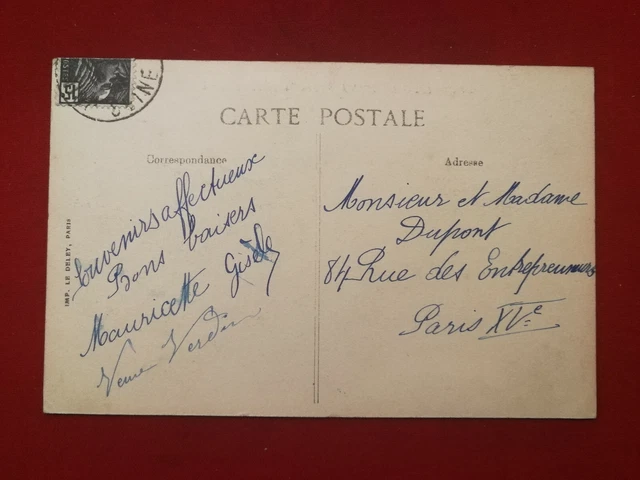 15
SEINE
CARTE POSTALE
Correspondance
Souvenirs affectueux
Bons baisers
Mauricette Gisèle
Adresse
Monsieur et Madame
Dupont
84 Rue des Entrepreneurs
Paris XVe
IMP. LE DELEY, PARIS